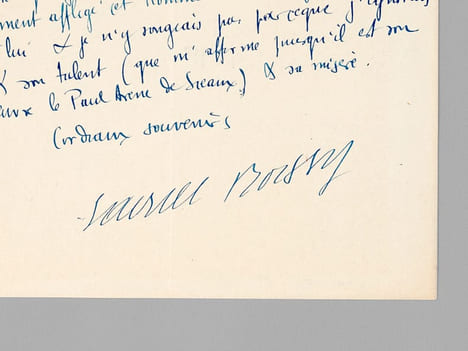 ment affligé et homme
lui & je n'y songeais pas parceque j'ignorais
& son talent (que m'affirme puisqu'il est son
le Paul Arène de Sceaux) & sa misère.
Cordiaux souvenirs
Gabriel Boissy